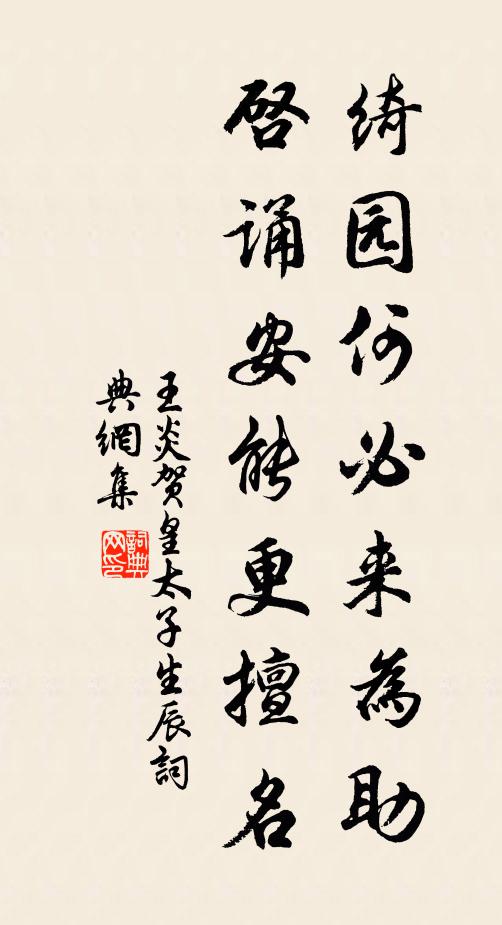 绮园何必来為助
启诵安能更擅名
王炎贺皇太子生辰詞
典網集
詞典网印